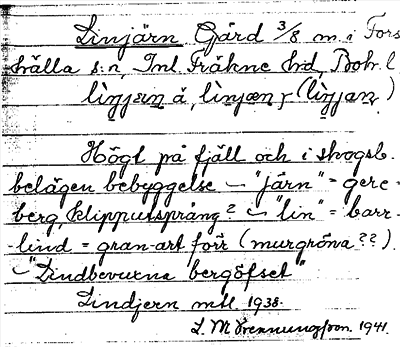 Linjärn Gård 3/8 m. i Fors
hälla s:n, Inl. Fräkne hrd, Boh. l
lìnjæn å, lìnjæn, (lìnjan)
Högt på fjäll och i skogsb.
belägen bebyggelse ~ "järn" = gere-
berg, klipputsprång? ~ "lin" = barr-
-lind = gran-art förr (murgröna??).
~ "Lindbevuxna bergöfset"
Lindjern mtl. 1938.
L. M. 1941.